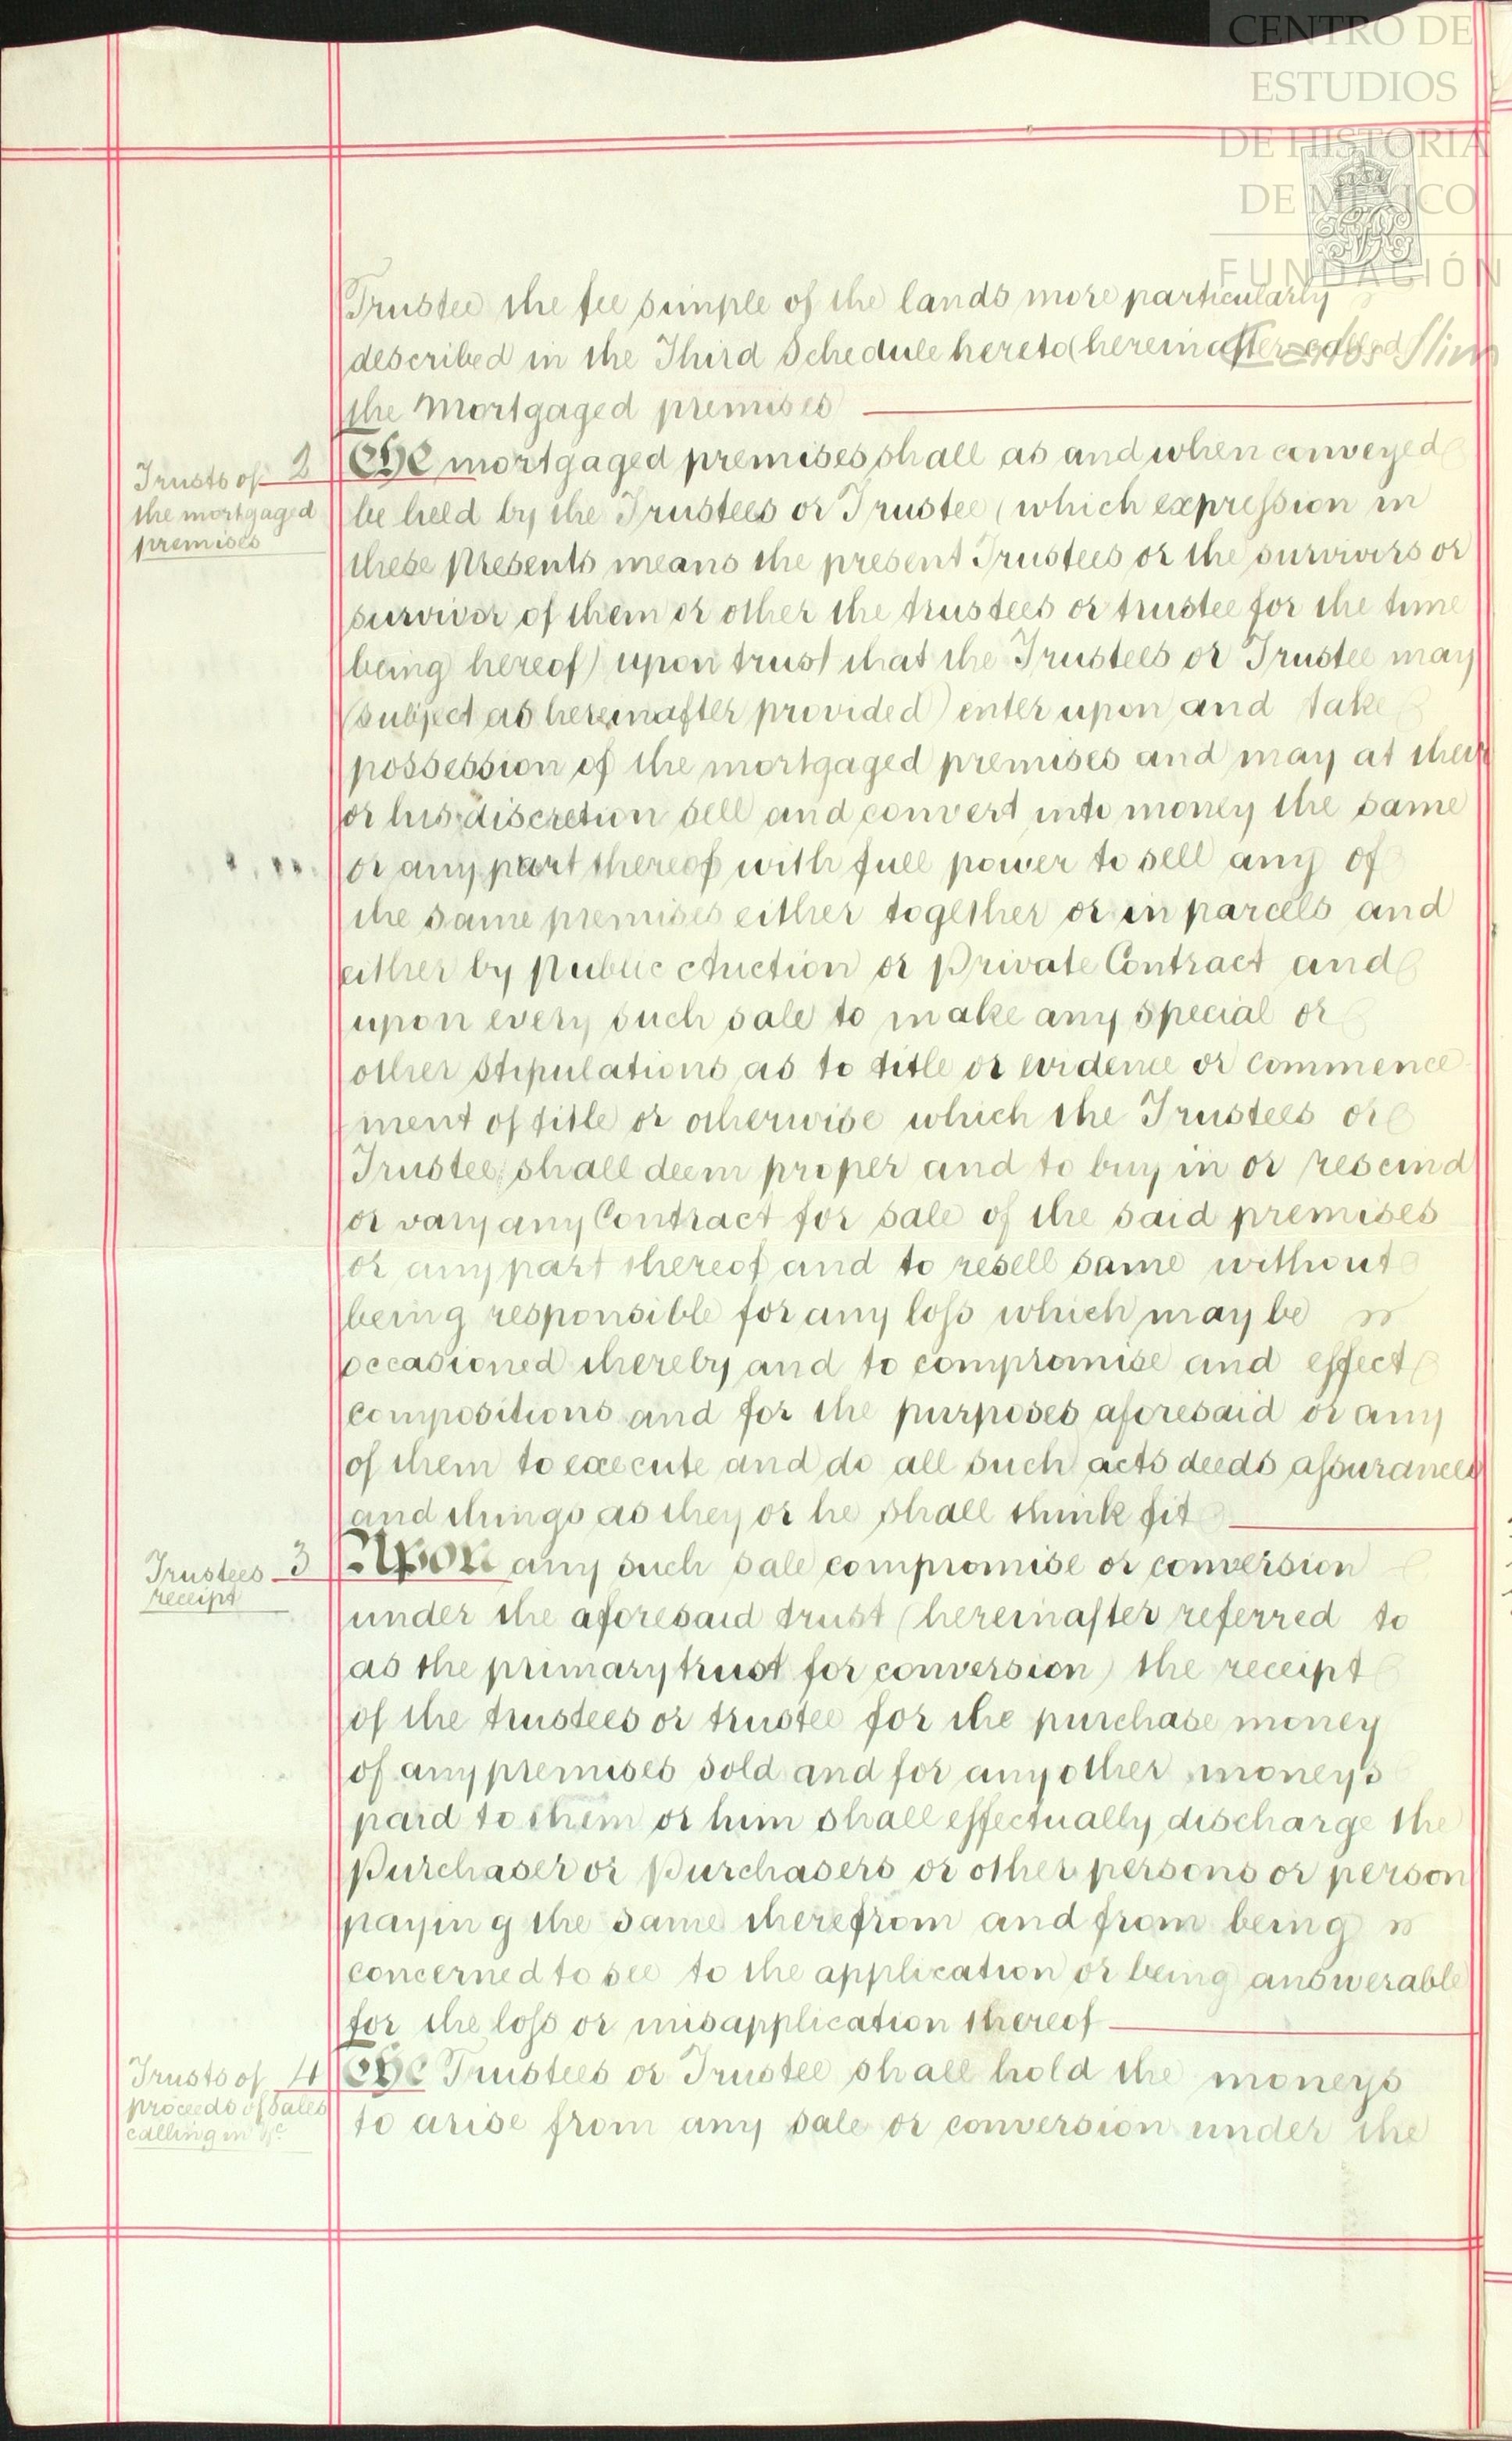 CENTRO DE
ESTUDIOS
DE HISTORIA
DE MÉXICO
FUNDACIÓN
Carlos Slim
Trustee the fee simple of the lands more particularly
described in the Third Schedule hereto (hereinafter called
the Mortgaged premises
Trusts of 2
the mortgaged
premises
The mortgaged premises shall as and when conveyed
be held by the Trustees or Trustee (which expression in
these Presents means the present Trustees or the survivors or
survivor of them or other the trustees or trustee for the time
being hereof) upon trust that the Trustees or Trustee may
(subject as hereinafter provided) enter upon and take
possession of the mortgaged premises and may at their
or his discretion sell and convert into money the same
or any part thereof with full power to sell any of
the same premises either together or in parcels and
either by Public Auction or Private Contract and
upon every such sale to make any special or
other stipulations as to title or evidence or commence
ment of title or otherwise which the Trustees or
Trustee shall deem proper and to buy in or rescind
or vary any Contract for sale of the said premises
or any part thereof and to resell same without
being responsible for any loss which may be
occasioned thereby and to compromise and effect
compositions and for the purposes aforesaid or any
of them to execute and do all such acts deeds assurances
and things as they or he shall think fit
Trustees 3
receipt
Upon any such sale compromise or conversion
under the aforesaid trust (hereinafter referred to
as the primary trust for conversion) the receipt
of the trustees or trustee for the purchase money
of any premises sold and for any other moneys
paid to them or him shall effectually discharge the
Purchaser or Purchasers or other persons or person
paying the same therefrom and from being
concerned to see to the application or being answerable
for the loss or misapplication thereof
Trusts of 4
proceeds of Sales
calling in &c
The Trustees or Trustee shall hold the moneys
to arise from any sale or conversion under the